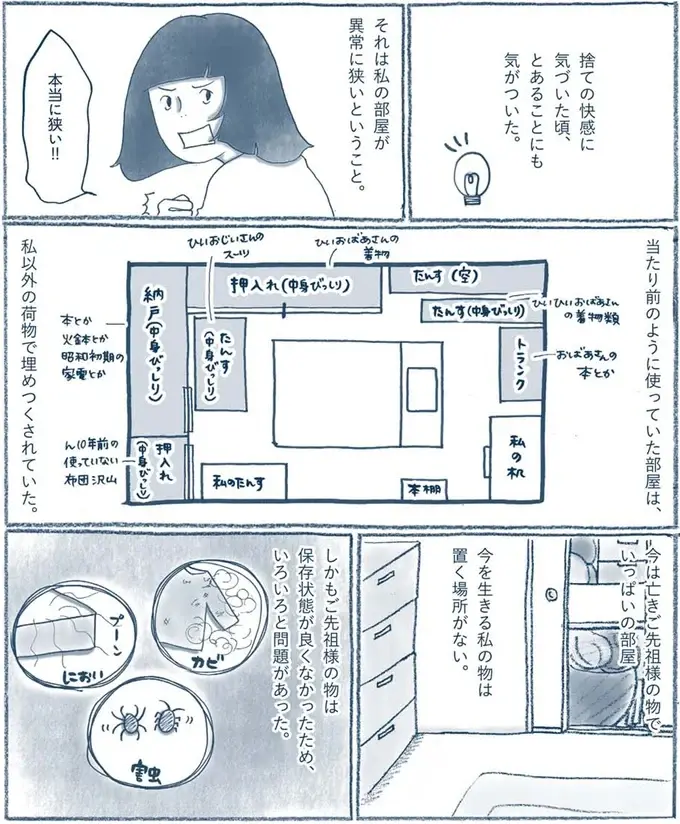 捨ての快感に
気づいた頃、
とあることにも
気がついた。
それは私の部屋が
異常に狭いということ。
本当に狭い!!
当たり前のように使っていた部屋は、
ひいおじいさんの
スーツ
ひいおばあさんの
着物
押入れ(中身びっしり)
たんす(空)
たんす(中身びっしり)
ひいひいおばあさん
の着物類
トランク
おばあさんの
本とか
私の机
本棚
私のたんす
たんす
(中身びっしり)
納戸(中身びっしり)
本とか
火鉢とか
昭和初期の
家電とか
押入れ
(中身びっしり)
ん10年前の
使っていない
布団沢山
私以外の荷物で埋めつくされていた。
今は亡きご先祖様の物で
いっぱいの部屋
今を生きる私の物は
置く場所がない。
しかもご先祖様の物は
保存状態が良くなかったため、
いろいろと問題があった。
カビ
プーン
におい
害虫